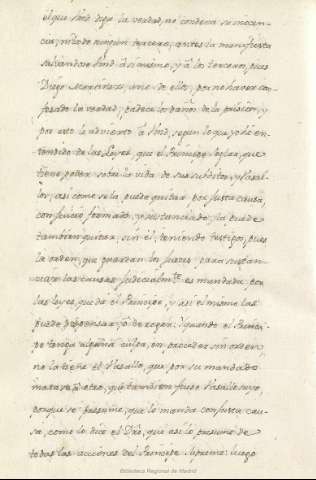 el que Vmd diga la verdad, no condena su inocen-
cia, ni todo ningun tercero; antes la manifiesta
salvandose Vmd à si mismo, y à los terceros, pues
Diego Martinez, uno de ellos, por no haver con-
fesado la verdad, padece los daños de la prision, y
por esto le advierto à Vmd, segun lo que yo he en-
tendido de las Leyes, que el Principe seglar, que
tiene poder sobre la vida de sus subditos, y vasa-
llos, asi como se la puede quitar por justa causa,
con juicio formado, y sustanciado, la puede
tambien quitar, sin él, teniendo testigos, pues
la orden, que guardan los jueces para sustan-
ciar las causas judicialmte. es mandada por
las Leyes, que da el Principe, y asi el mismo las
puede dispensar, o derogar: y quando el Princi-
pe tenga alguna culpa, en proceder sin orden
no la tiene el Vasallo, que por su mandado
matase à otro, que tambien fuese Vasallo suyo,
porque se presume, que lo manda con justa cau-
sa, como lo dice el Dro, que asi lo presume de
todas las acciones del Principe Supremo: luego
Biblioteca Regional de Madrid